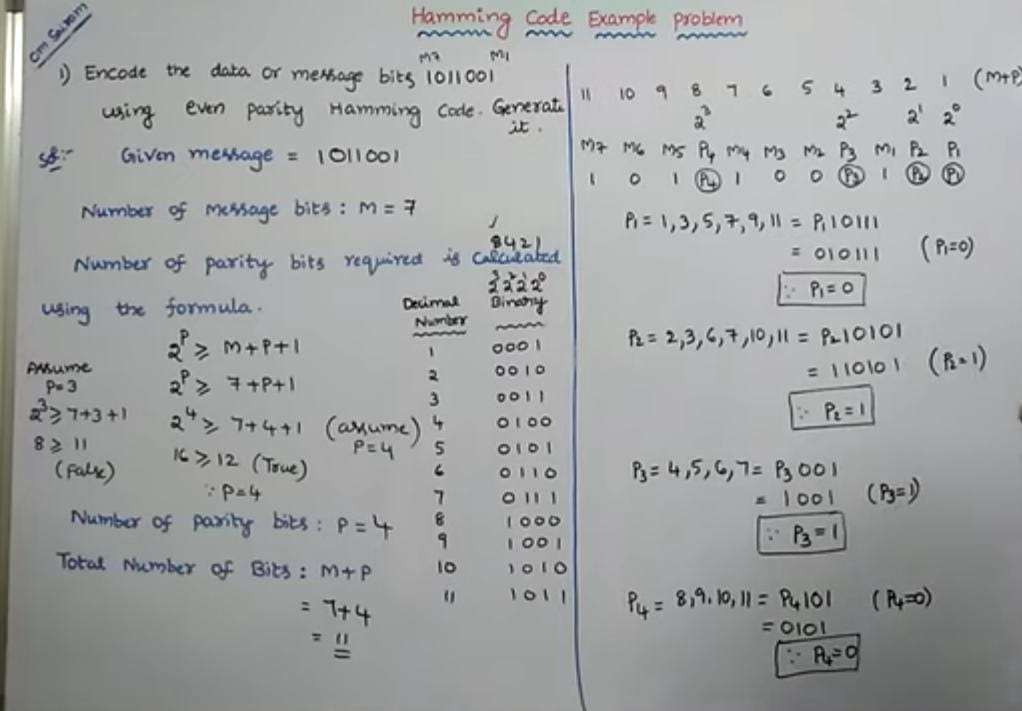 Om Sairam
Hamming Code Example Problem
M7 M1
1) Encode the data or message bits 1011001
using even parity Hamming Code. Generate
it.
Sol:- Given message = 1011001
Number of Message bits : M = 7
8421
Number of parity bits required is Calculated
using the formula.
2^P ≥ M+P+1
Assume
P=3
2^P ≥ 7+P+1
2^3 ≥ 7+3+1
2^4 ≥ 7+4+1 (assume)
P=4
8 ≥ 11
(False)
16 ≥ 12 (True)
∵ P=4
Number of parity bits : P = 4
Total Number of Bits : M+P
= 7+4
= 11
2^3 2^2 2^1 2^0
Decimal Number Binary
1 0001
2 0010
3 0011
4 0100
5 0101
6 0110
7 0111
8 1000
9 1001
10 1010
11 1011
11 10 9 8 7 6 5 4 3 2 1 (M+P)
2^3 2^2 2^1 2^0
M7 M6 M5 P4 M4 M3 M2 P3 M1 P2 P1
1 0 1 P4 1 0 0 P3 1 P2 P1
P1 = 1,3,5,7,9,11 = P1 10111
= 010111 (P1=0)
∵ P1=0
P2 = 2,3,6,7,10,11 = P2 10101
= 110101 (P2=1)
∵ P2=1
P3 = 4,5,6,7 = P3 001
= 1001 (P3=1)
∵ P3=1
P4 = 8,9,10,11 = P4 101 (P4=0)
= 0101
∵ P4=0